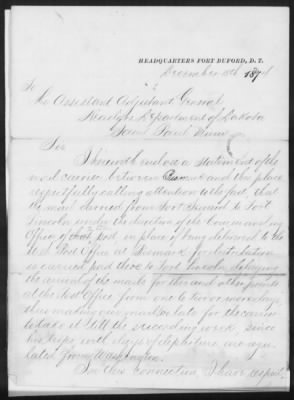 HEADQUARTERS FORT BUFORD, D. T.
December 15th 1874
To
The Assistant Adjutant General
Headqrs Department of Dakota
Saint Paul Minn
Sir
I herewith enclose a statement of the
mail carrier between Bismarck and this place
respectfully calling attention to the fact, that
the mail carried from Fort Stevenson to Fort
Lincoln under the direction of the Commanding
Officer of that post, in place of being delivered to the
U.S. Post Office at Bismarck for distribution
is carried past there to Fort Lincoln delaying
the arrival of the mails for this and other points
at the Post Office from one to two or more days,
thus making our mail too late for the carrier
to take it till the succeeding week, since
his trips and days of departure are regu-
lated from Washington.
In this connection, I have respect-